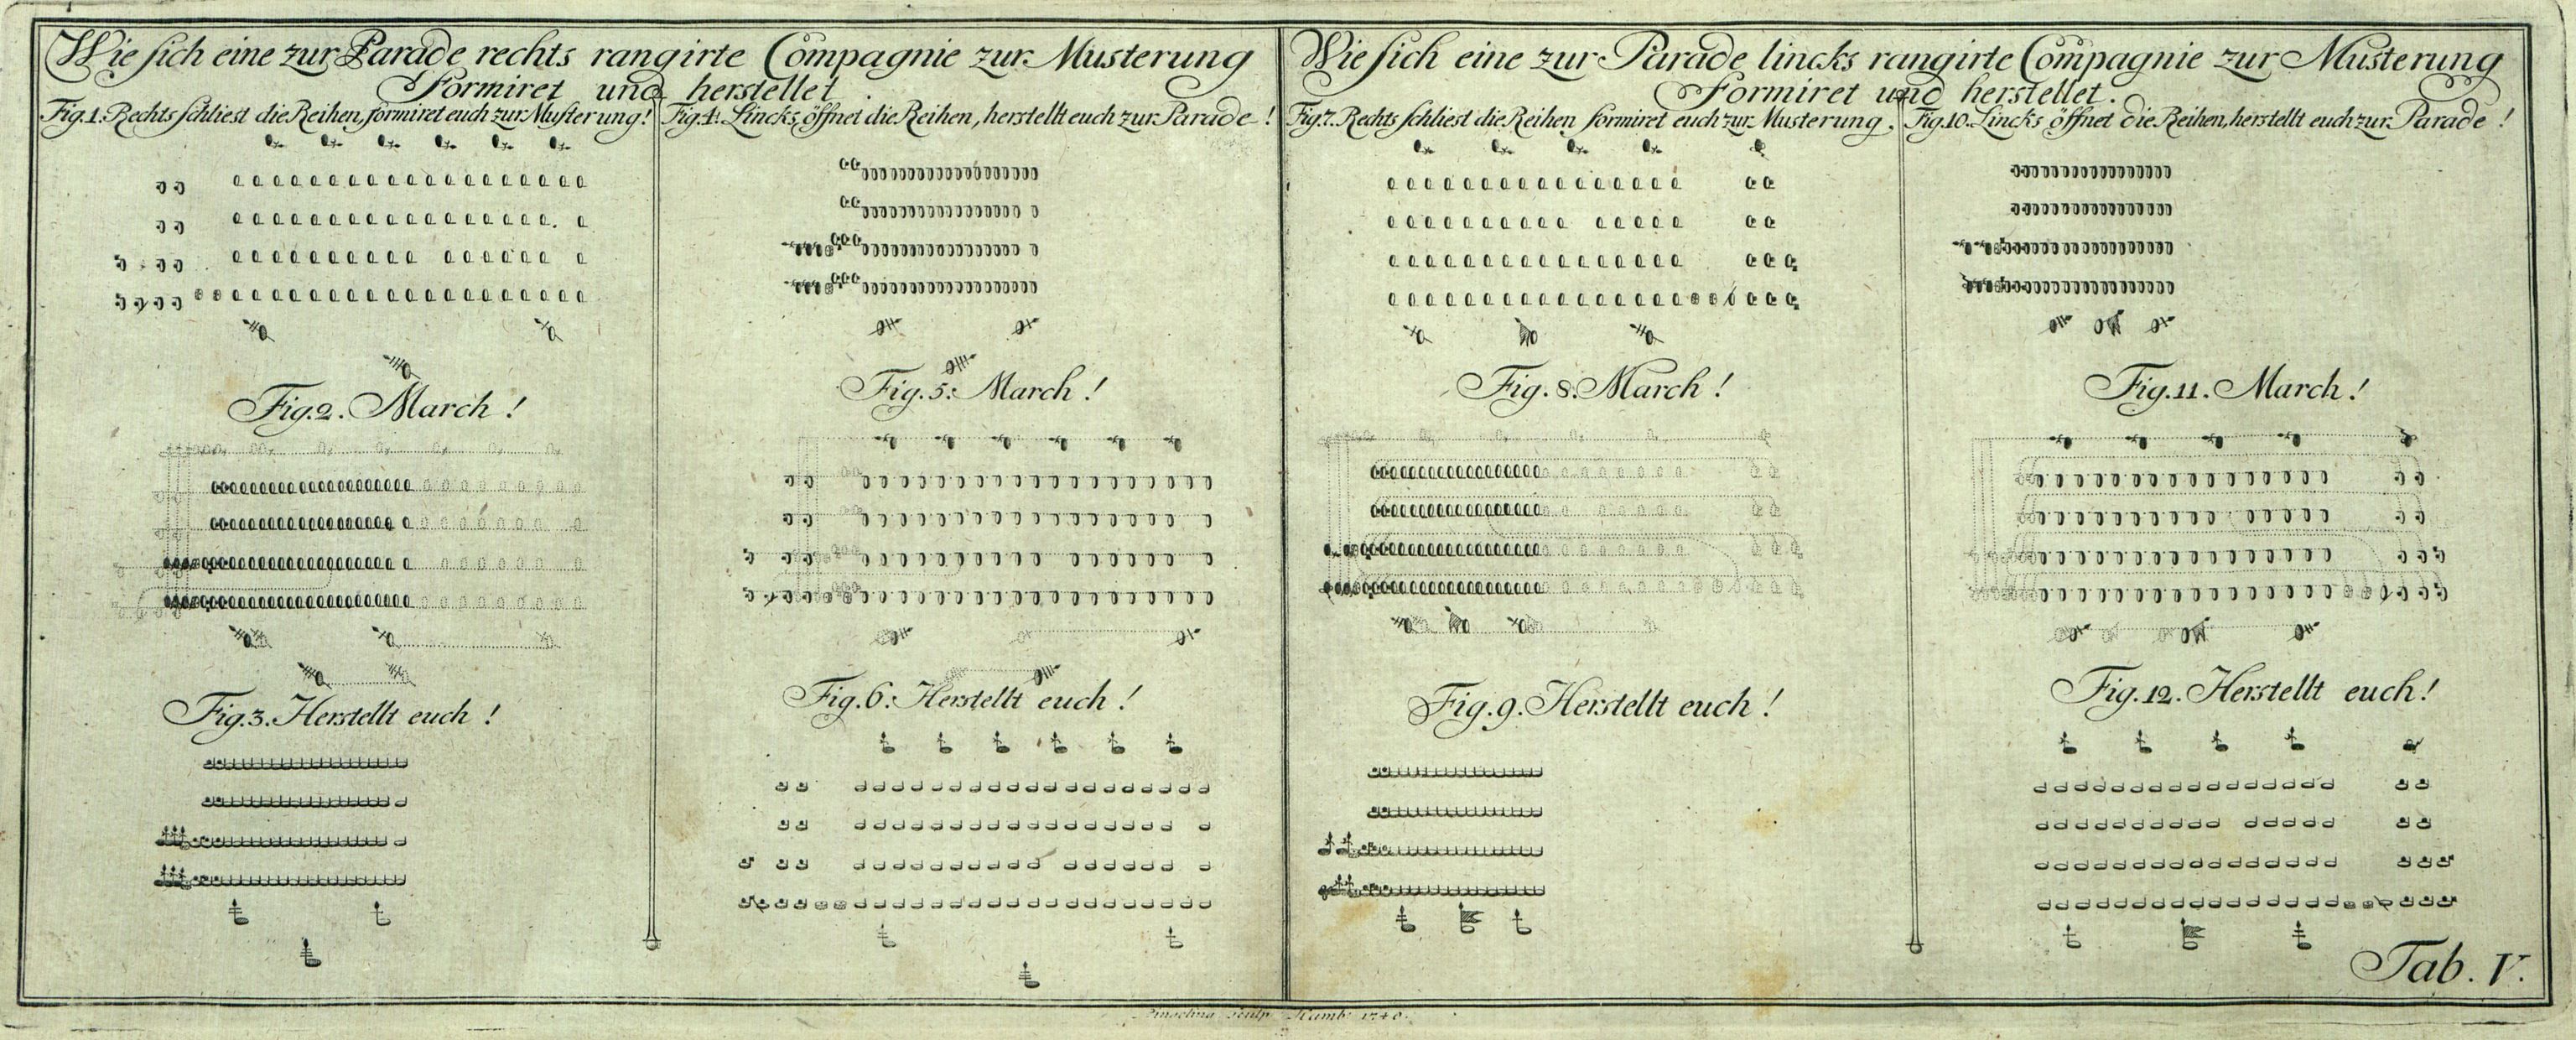 Wie sich eine zur Parade rechts rangirte Compagnie zur Musterung
Formiret und herstellet
Fig. 1. Rechts schliest die Reihen, formiret euch zur Musterung!
Fig. 2. March!
Fig. 3. Herstellt euch!
Fig. 4. Lincks öffnet die Reihen, herstellt euch zur Parade!
Fig. 5. March!
Fig. 6. Herstellt euch!
Wie sich eine zur Parade lincks rangirte Compagnie zur Musterung
Formiret und herstellet.
Fig. 7. Rechts schliest die Reihen formiret euch zur Musterung.
Fig. 8. March!
Fig. 9. Herstellt euch!
Fig. 10. Lincks öffnet die Reihen, herstellt euch zur Parade!
Fig. 11. March!
Fig. 12. Herstellt euch!
Tab. V.
sculp. Hamb. 1740.